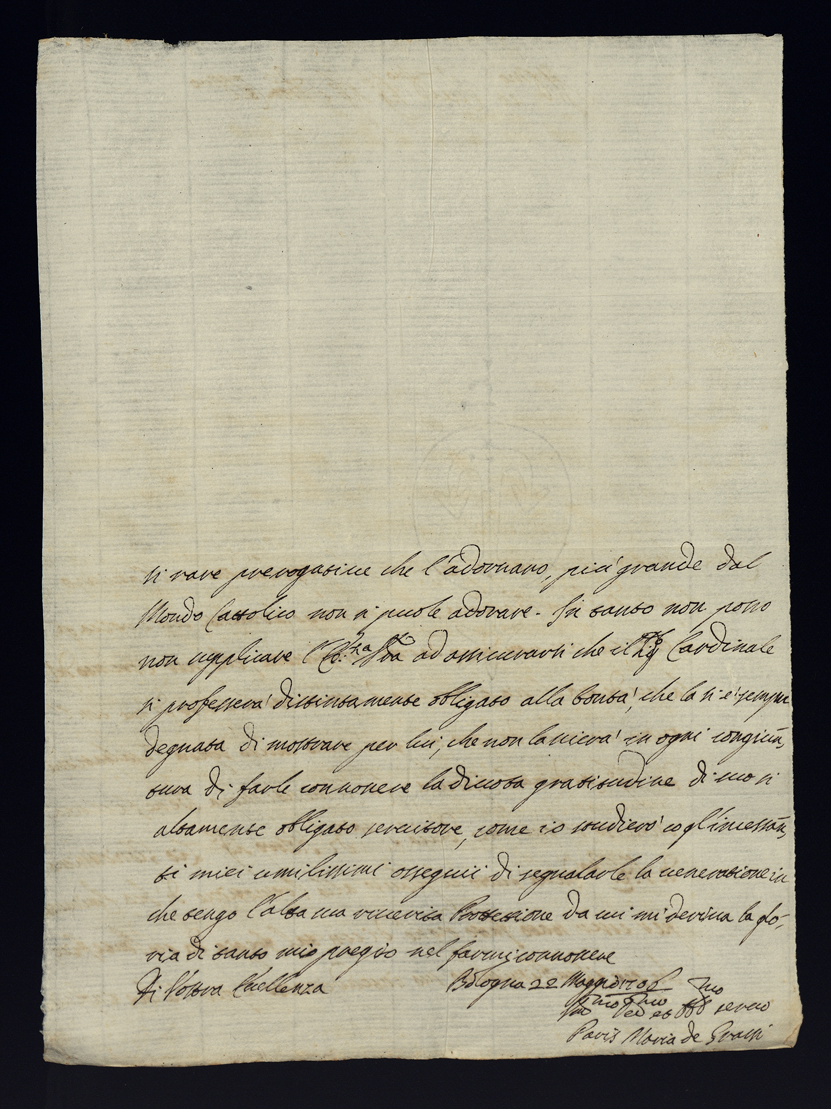 si rare prerogative che l'adornano, più grande dal
Mondo Cattolico non si puole adorare. In tanto non posso
non supplicare l'Ecc.za Vra ad assicurarsi che il Sig.r Cardinale
si professerà distintamente obligato alla bontà, che la si è sempre
degnata di mostrare per lui, che non lascierà in ogni congiun,
tura di farle connoscere la divota gratitudine di suo sì
altamente obligato servitore, come io studierò co gl'incessan,
ti miei umilissimi ossequii di segnalarle la venerazione in
che tengo l'alta sua riverita Protezione da cui mi deriva la glo,
ria di tanto mio pregio nel farmi connoscere
Di Vostra Eccellenza Bologna 22 Maggio 1706
Dev.mo et Obb.mo servo
Paris Maria de Grassi